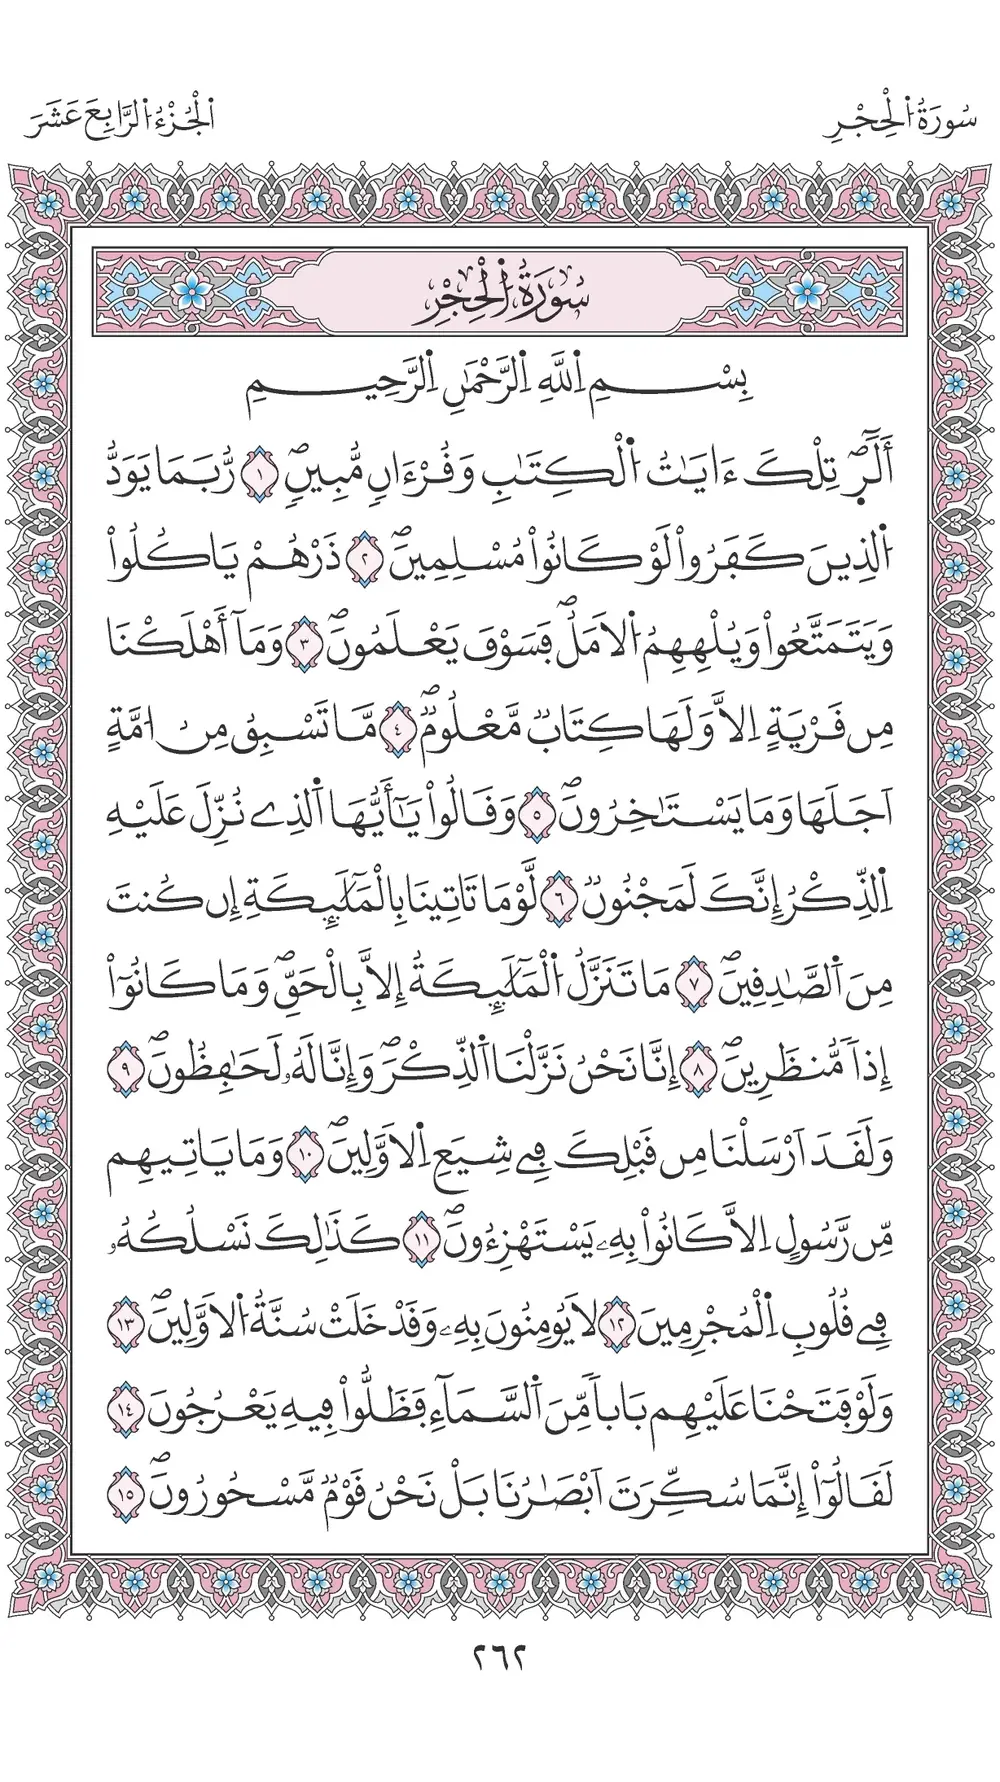 سُورَةُ الْحِجْرِ
الْجُزْءُ الرَّابِعَ عَشَرَ
سُورَةُ الْحِجْرِ
بِسْمِ اِللَّهِ اِلرَّحْمَٰنِ اِلرَّحِيمِ
أَلَٓرۖ تِلْكَ ءَايَٰتُ اُلْكِتَٰبِ وَقُرْءَانٖ مُّبِينٖۖ ١ رُّبَمَا يَوَدُّ
اُلذِينَ كَفَرُواْ لَوْ كَانُواْ مُسْلِمِينَۖ ٢ ذَرْهُمْ يَاكُلُواْ
وَيَتَمَتَّعُواْ وَيُلْهِهِمُ اُلَامَلُۖ فَسَوْفَ يَعْلَمُونَۖ ٣ وَمَآ أَهْلَكْنَا
مِن قَرْيَةٍ اِلَّا وَلَهَا كِتَابٞ مَّعْلُومٞۖ ٤ مَّا تَسْبِقُ مِنُ ا۟مَّةٍ
اَجَلَهَا وَمَا يَسْتَٰخِرُونَۖ ٥ وَقَالُواْ يَٰٓأَيُّهَا اَلذِے نُزِّلَ عَلَيْهِ
اِلذِّكْرُ إِنَّكَ لَمَجْنُونٞۖ ٦ لَّوْمَا تَاتِينَا بِالْمَلَٰٓئِكَةِ إِن كُنتَ
مِنَ اَلصَّٰدِقِينَۖ ٧ مَا تَنَزَّلُ اُلْمَلَٰٓئِكَةُ إِلَّا بِالْحَقِّۖ وَمَا كَانُوٓاْ
إِذاٗ مُّنظَرِينَۖ ٨ إِنَّا نَحْنُ نَزَّلْنَا اَلذِّكْرَۖ وَإِنَّا لَهُۥ لَحَٰفِظُونَۖ ٩
وَلَقَدَ اَرْسَلْنَا مِن قَبْلِكَ فِے شِيَعِ اِلَاوَّلِينَۖ ١٠ وَمَا يَاتِيهِم
مِّن رَّسُولٍ اِلَّا كَانُواْ بِهِۦ يَسْتَهْزِءُونَۖ ١١ كَذَٰلِكَ نَسْلُكُهُۥ
فِے قُلُوبِ اِلْمُجْرِمِينَ ١٢ لَا يُومِنُونَ بِهِۦ وَقَدْ خَلَتْ سُنَّةُ اُلَاوَّلِينَۖ ١٣
وَلَوْ فَتَحْنَا عَلَيْهِم بَاباٗ مِّنَ اَلسَّمَآءِ فَظَلُّواْ فِيهِ يَعْرُجُونَ ١٤
لَقَالُوٓاْ إِنَّمَا سُكِّرَتَ اَبْصَٰرُنَا بَلْ نَحْنُ قَوْمٞ مَّسْحُورُونَۖ ١٥
٢٦٢